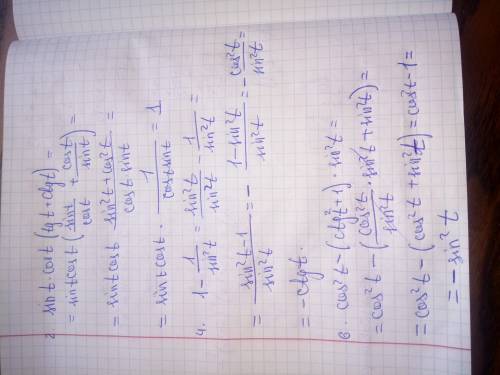 2. sin t · cos t (tg t + ctg t) =
= sin t cos t (sin t / cos t + cos t / sin t) =
= sin t cos t (sin²t + cos²t) / (cos t · sin t) =
= sin t cos t · 1 / (cos t sin t) = 1
4. 1 - 1 / sin²t = sin²t / sin²t - 1 / sin²t =
= (sin²t - 1) / sin²t = - (1 - sin²t) / sin²t = - cos²t / sin²t =
= - ctg t.
6. cos²t - (ctg²t + 1) · sin²t =
= cos²t - (cos²t / sin²t · sin²t + sin²t) =
= cos²t - (cos²t + sin²t) = cos²t - 1 =
= - sin²t